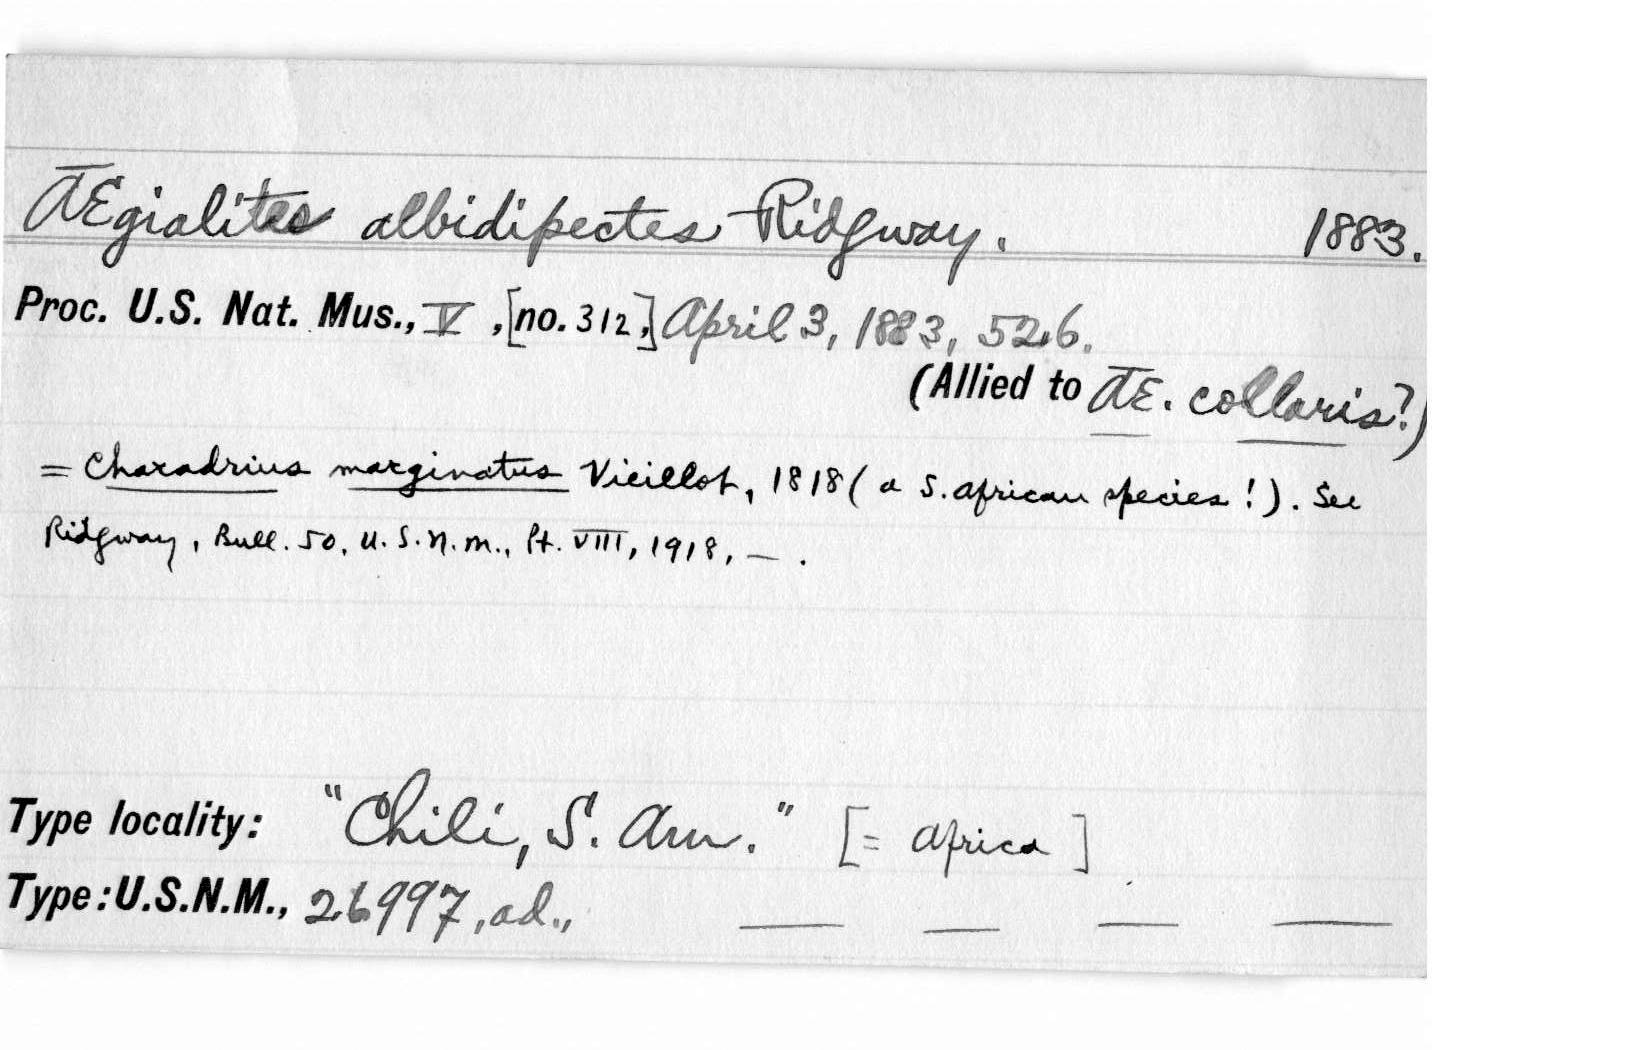 Ægialites albidipectus Ridgway. 1883.
Proc. U.S. Nat. Mus., V, [no. 312,] April 3, 1883, 526.
(Allied to Æ. collaris?)
= Charadrius marginatus Vieillot, 1818 (a S. African species!). See
Ridgway, Bull. 50, U.S.N.M., Pt. VIII, 1918, — .
Type locality: "Chili, S. Am." [= Africa]
Type: U.S.N.M., 26997, ad., — — — —